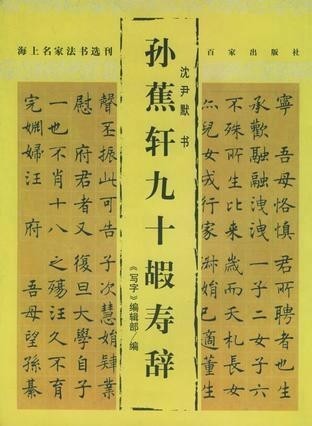 海上名家法书选刊
百家出版社
沈尹默书
孙蕉轩九十嘏寿辞
《写字》编辑部/编
寧吾母恪慎君所聘者也
承歡融融洩洩一子二女子六
不殊所生比来歲而夭札長女
尒兒女成行家淋娋已適董生
聲丕振山可告子次慧娋肄業
慰府君者又復旦大學自子
一也不肖十八之殤汪久不育
完姻婦汪府吾母望孫綦